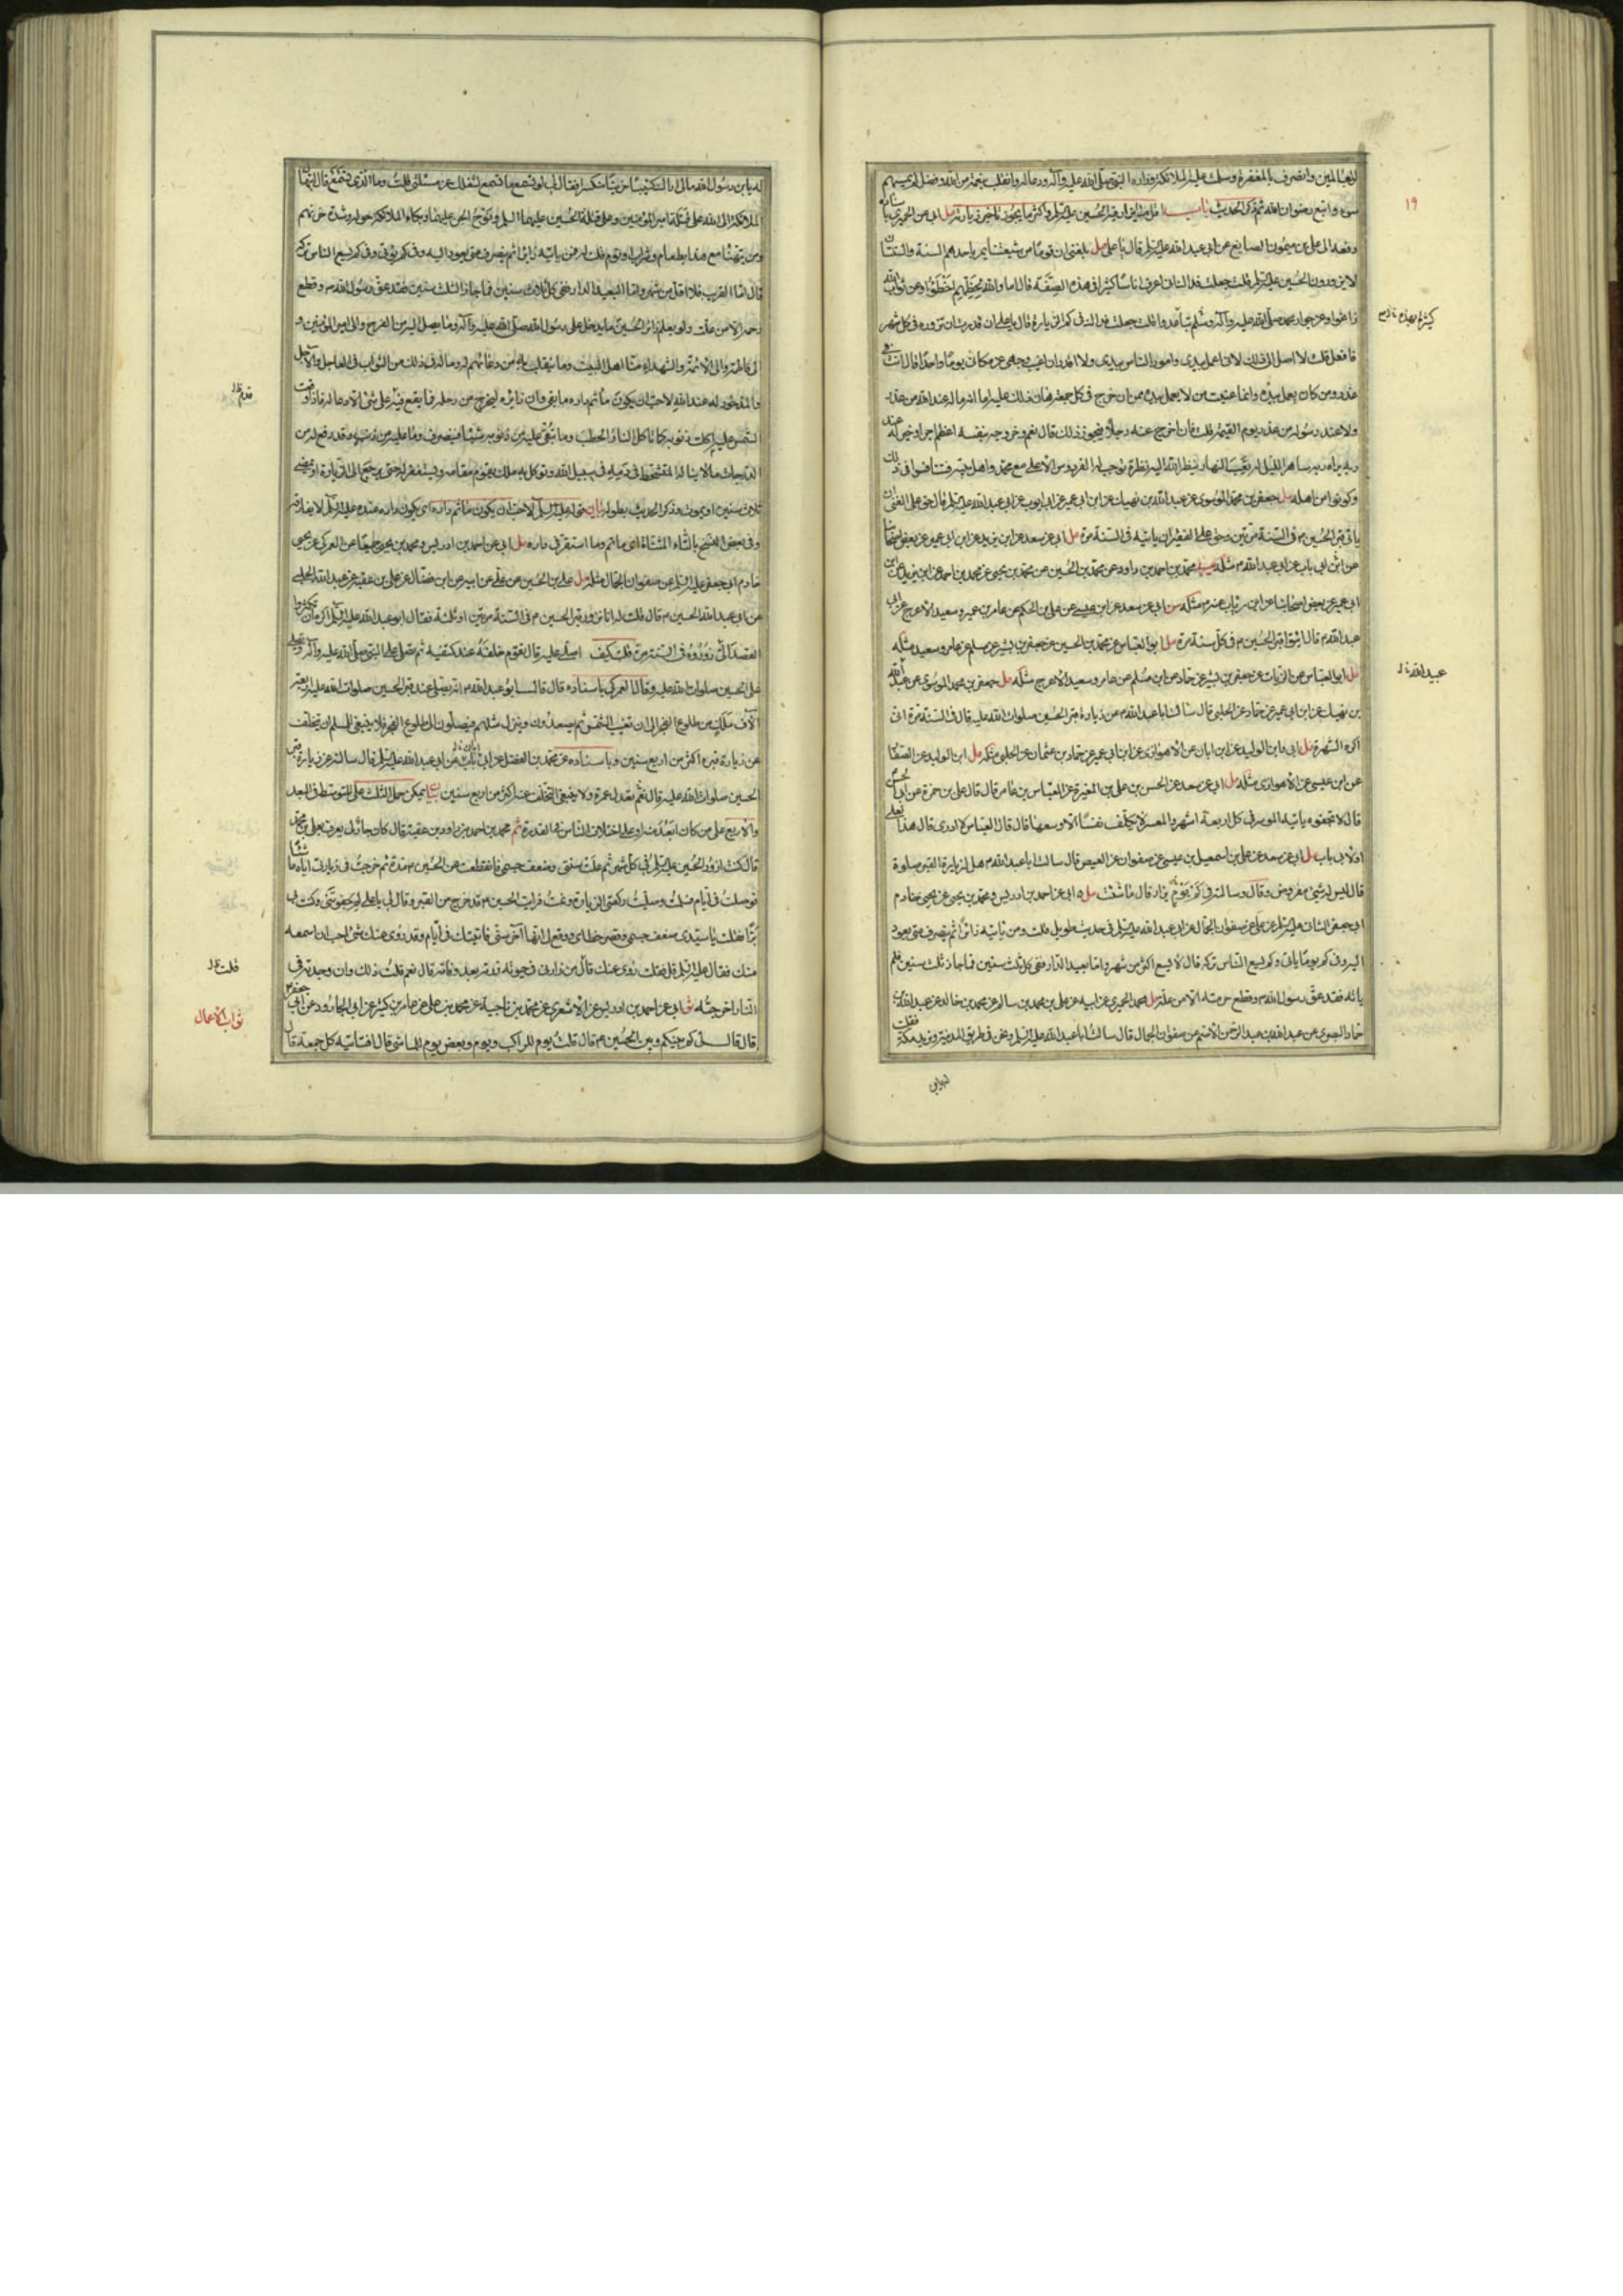 العالمين وانصرف بالمغفرة وسلمت عليه الملائكة وزاره النبي صلى الله عليه وآله ودعا له وانقلب بنعمة من الله وفضل لم يمسسهم
سوء واتبع رضوان الله ثم ذكر الحديث باب اقل ما يزار فيه الحسين عليه السلم واكثر ما يجوز تأخير زيارته مل ابي عن الحميري باسناده
رفعه الى علي بن ميمون الصايغ عن ابي عبد الله عليه السلم قال يا علي بلغني ان قوما من شيعتنا يمر باحدهم السنة والسنتان
لا يزورون الحسين عليه السلم قلت جعلت فداك اني اعرف اناسا كثيرا في هذه الصفة قال اما والله لحظهم اخطؤا وعن ثواب الله
زاغوا وعن جوار محمد صلى الله عليه وآله وسلم تباعدوا قلت جعلت فداك في كم الزيارة قال يا علي ان قدرت ان تزوره في كل شهر
فافعل قلت لا اصل الى ذلك لاني اعمل بيدي وامور الناس بيدي ولا اقدر ان اغيب وجهي عن مكاني يوما واحدا قال انت في
عذر ومن كان يعمل بيده وانما عنيت من لا يعمل بيده ممن ان خرج في كل جمعة هان ذلك عليه اما انه ما له عند الله من عذر
ولا عند رسوله من عذر يوم القيمة قلت فان اخرج عنه رجلا فيجوز ذلك قال نعم وخروجه بنفسه اعظم اجرا وخيرا له عند
ربه يراه ربه ساهر الليل له تعب النهار ينظر الله اليه نظرة توجب له الفردوس الاعلى مع محمد واهل بيته فتنافسوا في ذلك
وكونوا من اهله مل جعفر بن محمد الموسوي عن عبد الله بن نهيك عن ابن ابي عمير عن ابي ايوب عن ابي عبد الله عليه السلم قال حق على الغني ان
ياتي قبر الحسين م في السنة مرتين وحق على الفقير ان ياتيه في السنة مرة مل ابي عن سعد عن ابن يزيد عن ابن ابي عمير عن بعض اصحابنا
عن ابن ابي ناب عن ابي عبد الله م مثله يب محمد بن احمد بن داود عن محمد بن الحسين عن محمد بن يحيى عن محمد بن احمد عن ابن يزيد عن ابن
ابي عمير عن بعض اصحابنا عن ابن رئاب عنه م مثله مل ابي عن سعد عن ابن عيسى عن علي بن الحكم عن عامر بن عمير وسعيد الاعرج عن ابي
عبد الله م قال ايتوا قبر الحسين م في كل سنة مرة مل ابو العباس عن محمد بن الحسين عن جعفر بن بشير عن سلم عن عامر وسعيد مثله
مل ابو العباس عن الزيات عن جعفر بن بشير عن حماد عن ابن مسلم عن عامر وسعيد الاعرج مثله مل جعفر بن محمد الموسوي عن عبد الله
بن نهيك عن ابن ابي عمير عن حماد عن الحلبي قال سالت ابا عبد الله م عن زيارة قبر الحسين صلوات الله عليه قال في السنة مرة اني
اكره الشهرة مل ابي وابن الوليد عن ابن ابان عن الاهوازي عن ابن ابي عمير عن حماد بن عثمان عن الحلبي مثله مل ابن الوليد عن الصفار
عن ابن عيسى عن الاهوازي مثله مل ابي عن سعد عن الحسن بن علي بن المغيرة عن العباس بن عامر قال قال علي بن حمزة عن ابي الحسن م
قال لا تجفوه ياتيه الموسر في كل اربعة اشهر والمعسر لا يكلف نفسا الا وسعها قال قال العباس لا ادري قال هذا لعلي
او لابي ناب مل ابي عن سعد عن علي بن اسمعيل بن عيسى عن صفوان عن العيص قال سالت ابا عبد الله م هل لزيارة القبر صلوة
قال ليس له شيء مفروض وقال وسالته في كم يوم يزار قال ما شئت مل ابي عن احمد بن ادريس ومحمد بن يحيى عن يحيى خادم
ابي جعفر الثاني عليه السلم عن علي عن صفوان الجمال عن ابي عبد الله عليه السلم في حديث طويل قلت ومن ياتيه زائرا ثم ينصرف متى يعود
اليه وفي كم يوما ياتى وكم يسع الناس تركه قال لا يسع اكثر من شهر واما بعيد الدار ففي كل ثلث سنين فما جاز ثلث سنين فلم
ياته فقد عق رسول الله م وقطع حرمته الا من علة مل محمد الحميري عن ابيه عن علي بن محمد بن سالم عن محمد بن خالد عن عبد الله بن
حماد البصري عن عبد الله بن عبد الرحمن الاصم عن صفوان الجمال قال سالت ابا عبد الله عليه السلم ونحن في طريق المدينة ونريد مكة فقلت
له يابن رسول الله مالي اراك كئيبا حزينا منكسرا فقال لي لو تسمع ما اسمع لشغلك عن مسئلتي قلت وما الذي تسمع قال ابتهال
الملائكة الى الله على قتلة امير المؤمنين وعلى قتلة الحسين عليهما السلم ونوح الجن عليهما وبكاء الملائكة حوله وشدة حزنهم
ومن يتهنأ مع هذا بطعام وشراب او نوم قلت له فمن ياتيه زائرا ثم ينصرف متى يعود اليه وفي كم يؤتى وفي كم يسع الناس تركه
قال اما القريب فلا اقل من شهر واما البعيد الدار ففي كل ثلاث سنين فما جاز الثلث سنين فقد عق رسول الله م وقطع
رحمه الا من علة ولو يعلم زائر الحسين ما يدخل على رسول الله صلى الله عليه وآله وما يصل اليه من الفرح والى امير المؤمنين و
الى فاطمة والى الائمة والشهداء منا اهل البيت وما ينقلب به من دعائهم له وما له في ذلك من الثواب في العاجل والاجل
والمذخور له عند الله لاحب ان يكون ما ثم داره ما بقي وان زائره ليخرج من رحله فما يقع فيئه على شئ الا دعا له فاذا وقعت
الشمس عليه اكلت ذنوبه كما تاكل النار الحطب وما تبقي عليه من ذنوبه شيئا فينصرف وما عليه من ذنب وقد رفع له من
الدرجات ما لا يناله المتشحط في دمه في سبيل الله ويوكل به ملك يقوم مقامه ويستغفر له حتى يرجع الى الزيارة او تمضي
ثلاث سنين او يموت وذكر الحديث بطوله بيان قوله عليه السلم لاحب ان يكون ما ثم داره اي يكون داره عنده عليه السلم لا يفارقه
وفي بعض النسخ بالتاء المثناة اي ما تم وما استقر في داره مل ابي عن احمد بن ادريس ومحمد بن يحيى جميعا عن العمركي عن يحيى
خادم ابي جعفر عليه السلم عن صفوان الجمال مثله مل علي بن الحسين عن علي عن ابيه عن ابن فضال عن علي بن عقبة عن عبد الله الحلبي
عن ابي عبد الله الحسين م قال قلت له انا نزور قبر الحسين م في السنة مرتين او ثلثة فقال ابو عبد الله عليه السلم اكره ان تكثروا
القصد الي زوروه في السنة مرة قلت كيف اصلي عليه قال تقوم خلفه عند كتفيه ثم تصلي على النبي صلى الله عليه وآله وتصلي
على الحسين صلوات الله عليه وقال العمركي باسناده قال قال ابو عبد الله م انه يصلي عند قبر الحسين صلوات الله عليه اربعة
آلاف ملك من طلوع الفجر الى ان تغيب الشمس ثم يصعدون وينزل مثلهم فيصلون الى طلوع الفجر فلا ينبغي للمسلم ان يتخلف
عن زيارة قبره اكثر من اربع سنين وباسناده عن محمد بن الفضل عن ابي ناب عن ابي عبد الله عليه السلم قال سالته عن زيارة قبر
الحسين صلوات الله عليه قال نعم تعدل عمرة ولا ينبغي التخلف عنه اكثر من اربع سنين بيان يمكن حمل الثلث على المتوسط في البعد
والاربع على من كان ابعد منه او على اختلاف الناس في القدرة ثم محمد بن احمد بن داود بن عقبة قال كان جار لي يعرف بعلي بن محمد
قال كنت ازور الحسين عليه السلم في كل شهر ثم علت سني وضعف جسمي فانقطعت عن الحسين م مدة ثم خرجت في زيارتي اياه ماشيا
فوصلت في ايام فسلمت وصليت ركعتي الزيارة ونمت فرايت الحسين م قد خرج من القبر وقال لي يا علي لم جفوتني وكنت لي
برا فقلت يا سيدي ضعف جسمي وقصر خطاي ووقع لي انها آخر سني فاتيتك في ايام وقد روي عنك شئ احب ان اسمعه
منك فقال عليه السلم قل فقلت روي عنك قال من زارني في حيوته زرته بعد وفاته قال نعم قلت ذلك وان وجدته في
النار اخرجته ثو ابي عن احمد بن ادريس عن الاشعري عن محمد بن ناجية عن محمد بن علي عن عامر بن كثير عن ابي الجارود عن ابي جعفر م
قال قال لي كم بينكم وبين الحسين م قال قلت يوم للراكب ويوم وبعض يوم للماشي قال افتاتيه كل جمعة قال
١٩
عبيد الله
قلت
ثواب الاعمال